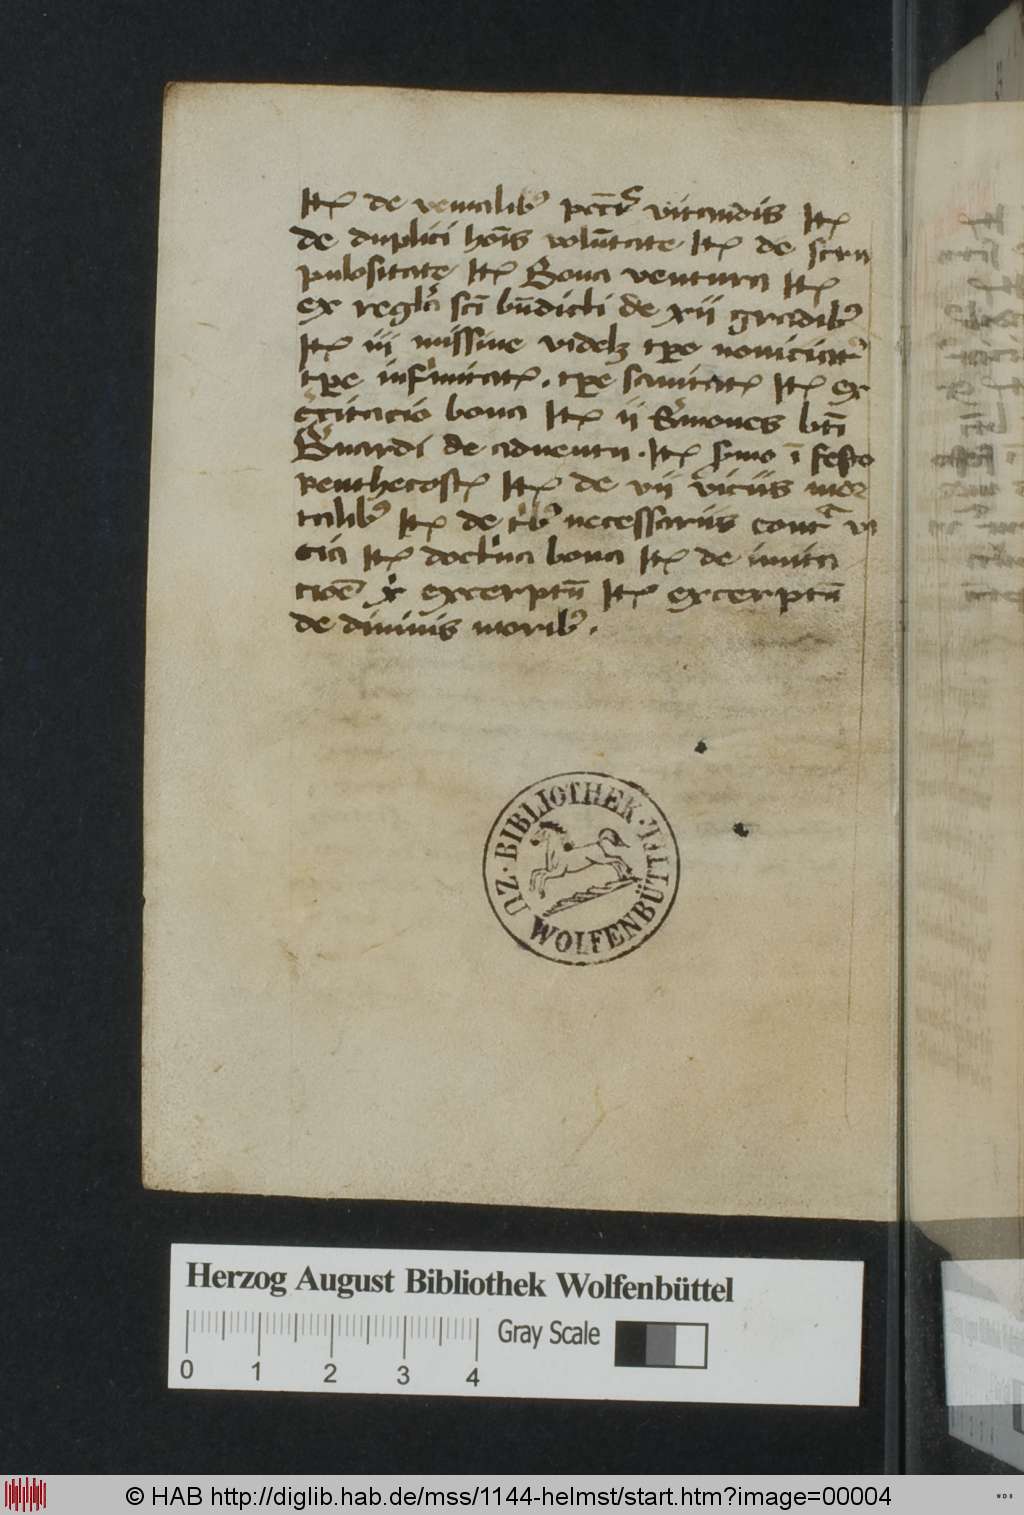 Itē de venialibꝰ pctīs vitandis Itē
de duplici hoīs volūtate Itē de scru
pulositate Itē Bona ventura Itē
ex regla sci bn̄dicti de xii gradibꝰ
Itē iii missiue videlꝫ tꝑe nouiciatꝰ
tꝑe infirmitatē . tꝑe sanitatē Itē ex
citacio bona Itē ii Sermones bti
Bernardi de aduentu . Itē sermo ī festo
Penthecostē Itē de vii viciis mor
talibꝰ Itē de necessariis contra vi
cia Itē doctrina bona Itē de imita
cioē x excerptū Itē excerptū
de diuinis moribꝰ .
BIBLIOTHEK · ZU WOLFENBÜTTEL ·
Herzog August Bibliothek Wolfenbüttel
Gray Scale
0 1 2 3 4
© HAB http://diglib.hab.de/mss/1144-helmst/start.htm?image=00004